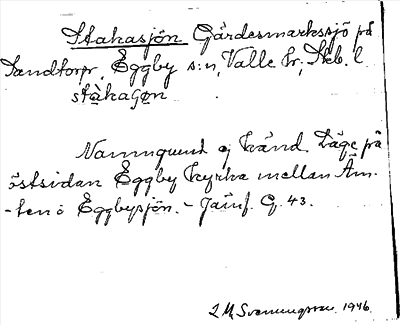 Stakasjön Gärdesmarkssjö på
Sandtorpr, Eggby s:n, Valle hr, Skb. l
stàkaGo̱n
Namnqvist ej känd. Läge på
östsidan Eggby kyrka mellan Äm-
-ten o Eggbysjön. - Jämf. G. 43.
Svenungsson 1946.